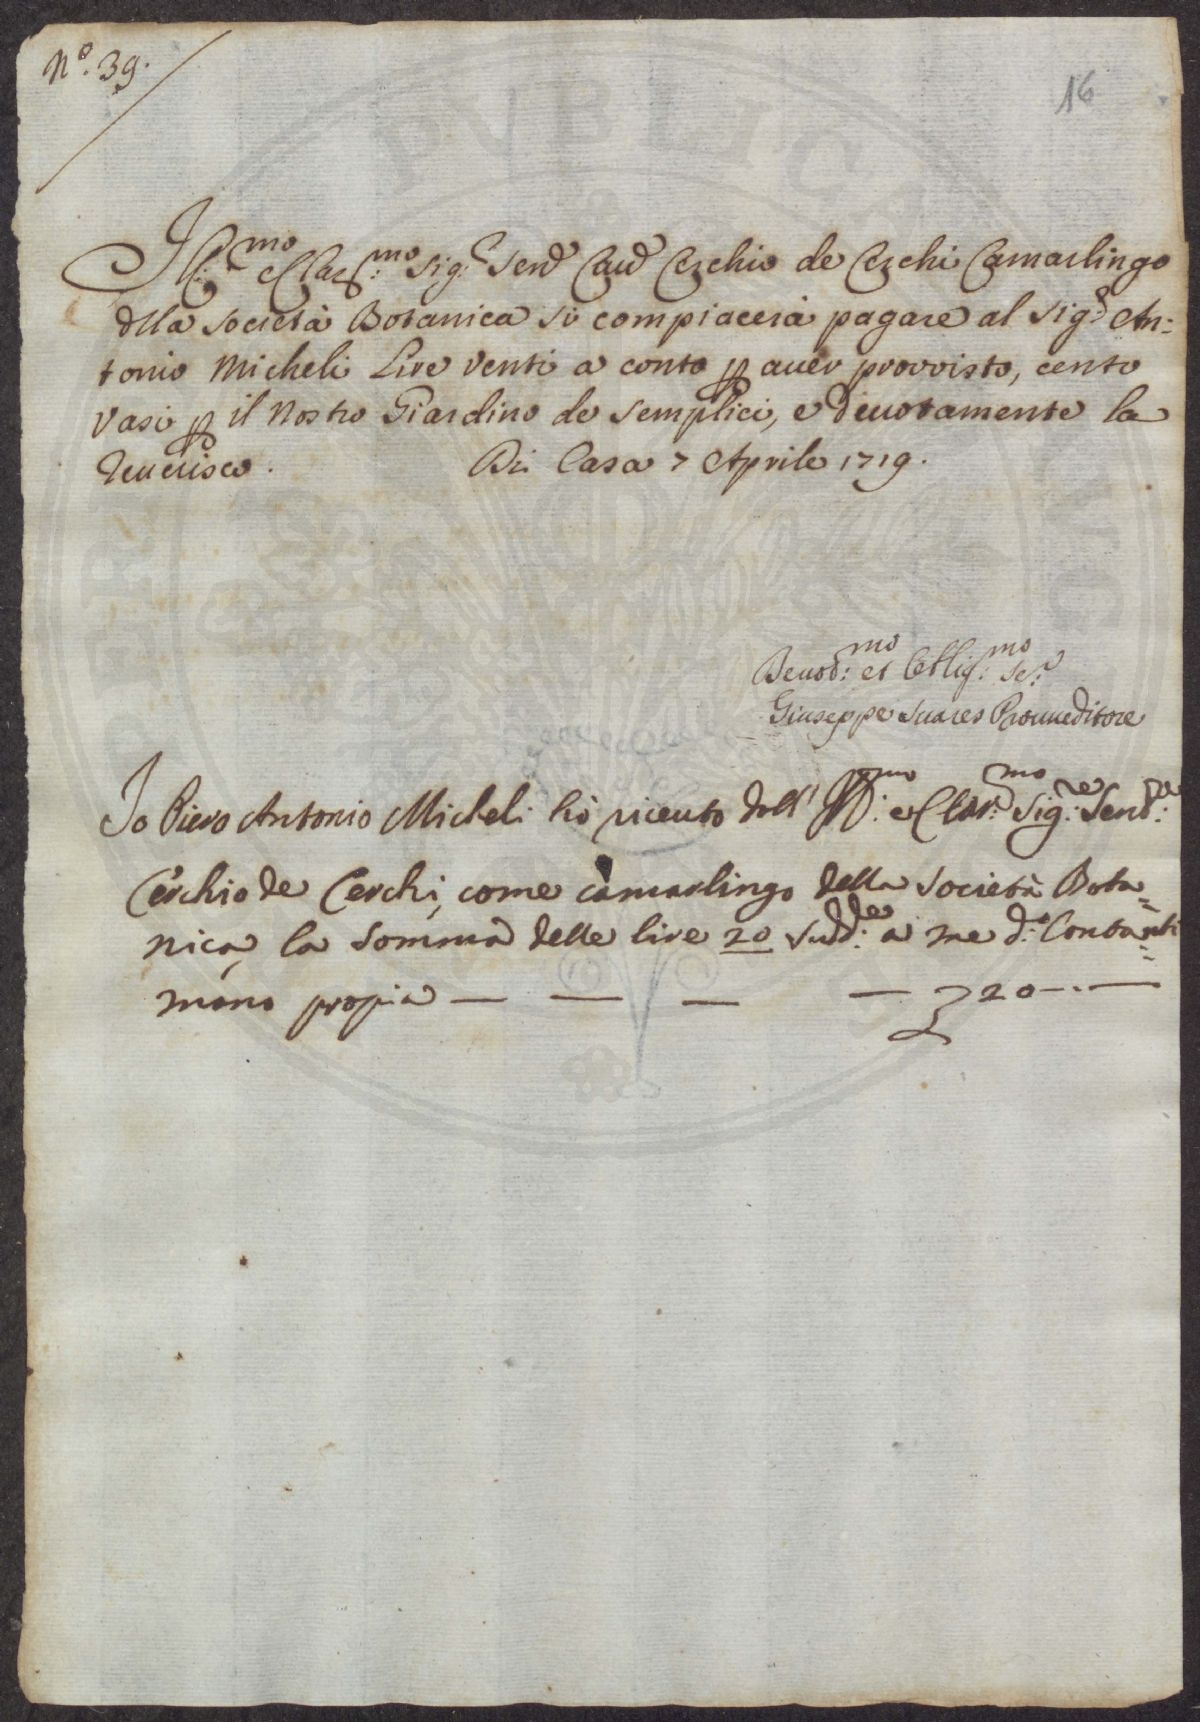 N.º 39.
16
Ill:mo e Clar:mo Sig:r Sen.r Cav.r Cerchio de Cerchi Camarlingo
dlla Società Botanica si compiacerà pagare al Sig.r An:
tonio Micheli Lire venti a conto p aver provvisto, cento
vasi p il nostro Giardino de Semplici, e devotamente la
reverisco. Di Casa 7 Aprile 1719.
Devot:mo et Obblig:mo Se:r
Giuseppe Suares Provveditore
Io Piero Antonio Micheli hò riceuto dall' Ill:mo e Clar:mo Sig:re Send:re
Cerchio de Cerchi, come camarlingo della Società Bota=
nica, la somma delle lire 20 Sudd:de a me d.i Contanti
mano propia — — — — 20 — . —